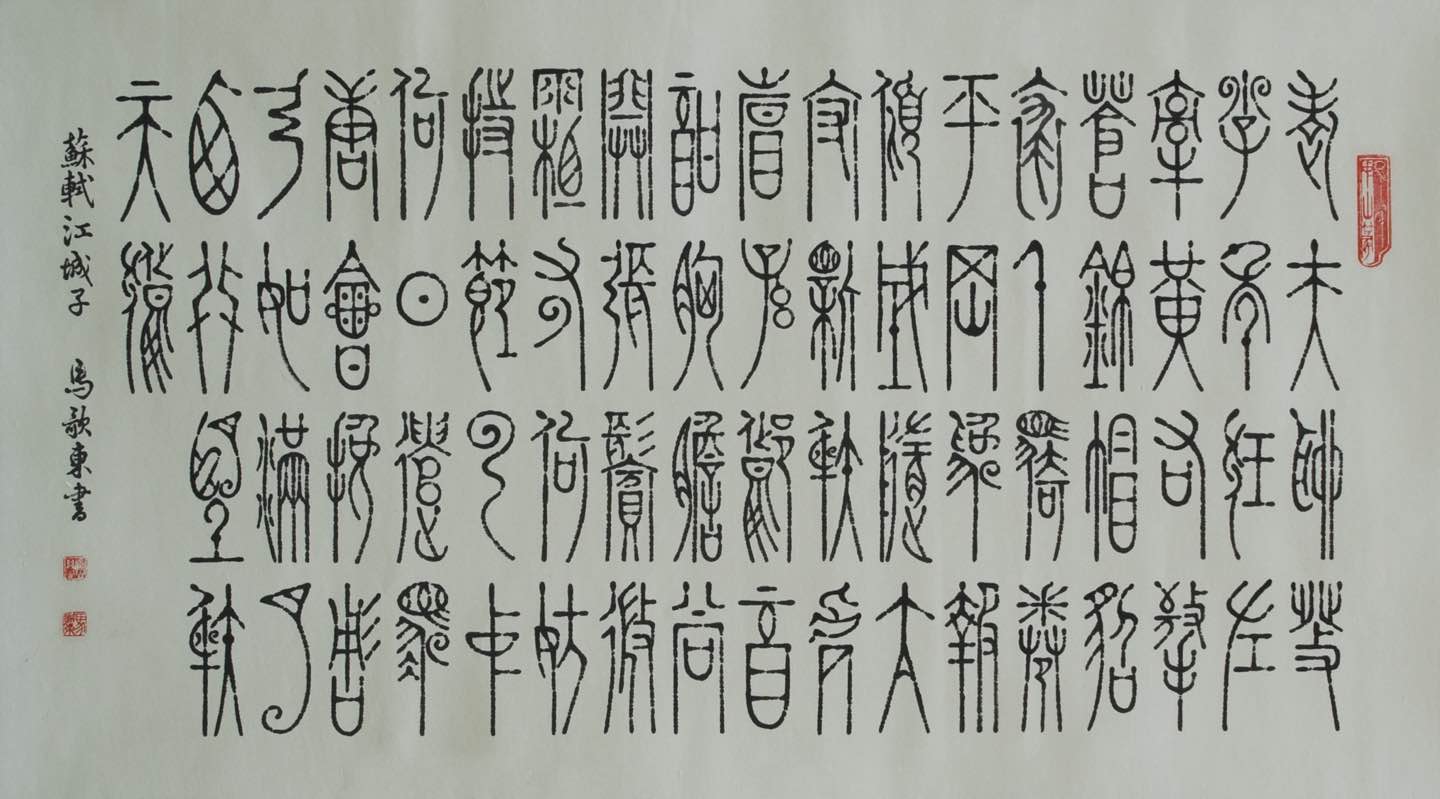 老夫聊發
少年狂左
牽黃右擎
蒼錦帽貂
裘千騎卷
平岡為報
傾城隨太
守親射虎
看孫郎酒
酣胸膽尚
開張鬢微
霜又何妨
持節雲中
何日遣馮
唐會挽雕
弓如滿月
西北望射
天狼
蘇軾江城子 馬歌東書